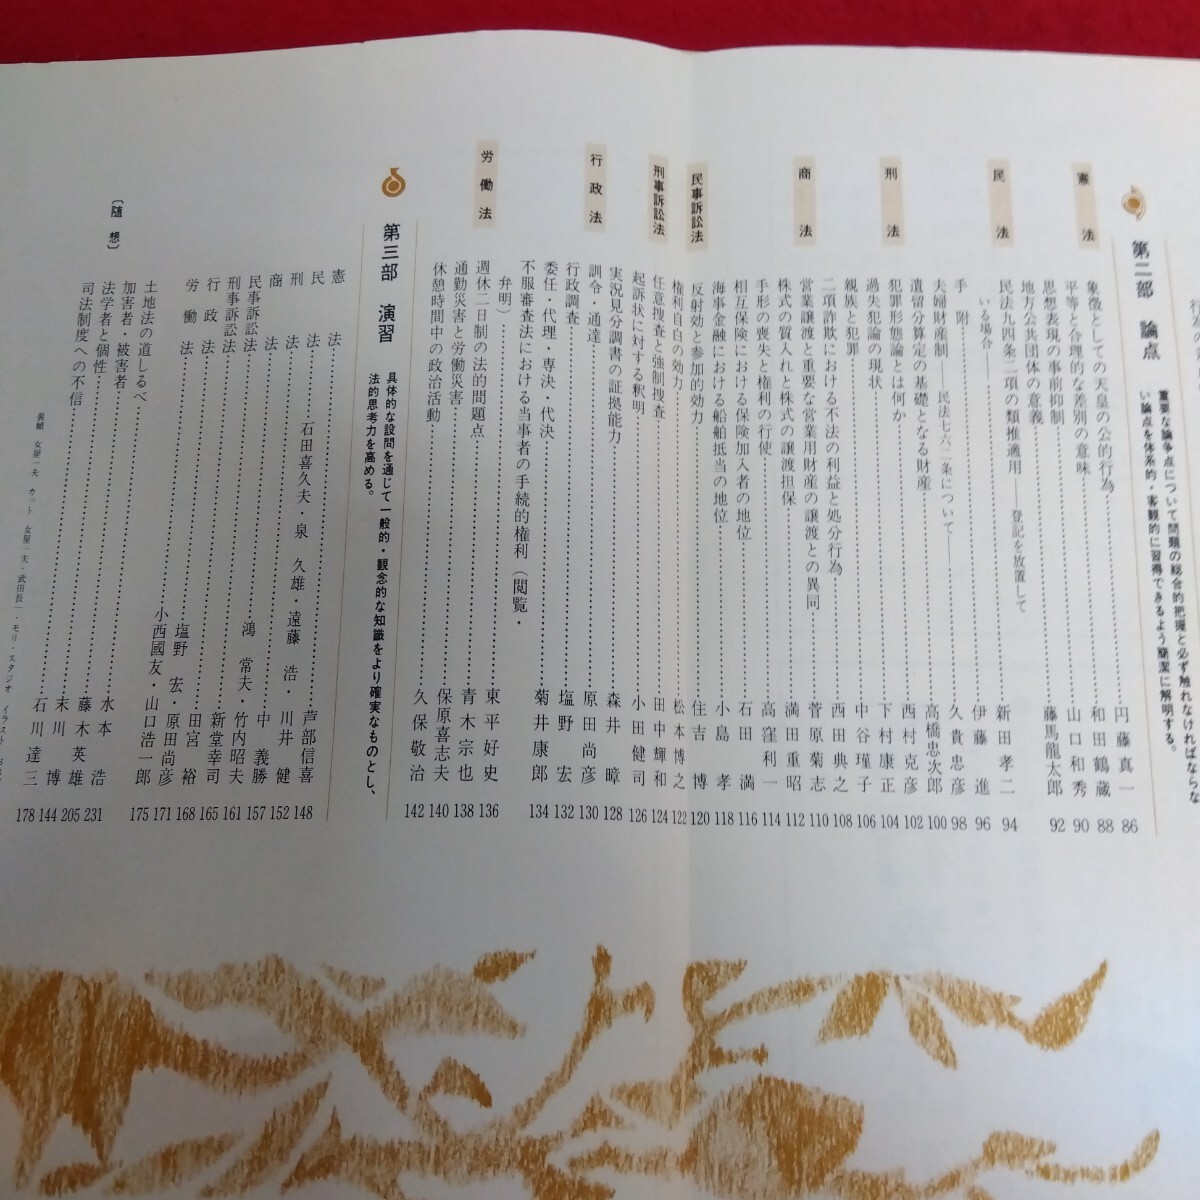 第二部 論点
重要な論争点について問題の総合的把握と必ず触れなければならな
い論点を体系的・客観的に習得できるよう簡潔に解明する。
憲法
象徴としての天皇の公的行為……円藤真一 86
平等と合理的な差別の意味……和田鶴蔵 88
思想表現の事前抑制……山口和秀 90
地方公共団体の意義……藤馬龍太郎 92
民法
民法九四条二項の類推適用——登記を放置して
いる場合——……新田孝二 94
手附……伊藤進 96
夫婦財産制——民法七六二条について——……久貴忠彦 98
遺留分算定の基礎となる財産……高橋忠次郎 100
刑法
犯罪形態論とは何か……西村克彦 102
過失犯論の現状……下村康正 104
親族と犯罪……中谷瑾子 106
二項詐欺における不法の利益と処分行為……西田典之 108
商法
営業譲渡と重要な営業用財産の譲渡との異同……菅原菊志 110
株式の質入れと株式の譲渡担保……満田重昭 112
手形の喪失と権利の行使……高窪利一 114
相互保険における保険加入者の地位……石田満 116
海事金融における船舶抵当の地位……小島孝 118
民事訴訟法
反射効と参加的効力……住吉博 120
権利自白の効力……松本博之 122
刑事訴訟法
任意捜査と強制捜査……田中輝和 124
起訴状に対する釈明……小田健司 126
実況見分調書の証拠能力……森井暲 128
行政法
訓令・通達……原田尚彦 130
行政調査……塩野宏 132
委任・代理・専決・代決……菊井康郎 134
不服審査法における当事者の手続的権利（閲覧・
弁明）……東平好史 136
労働法
週休二日制の法的問題点……青木宗也 138
通勤災害と労働災害……保原喜志夫 140
休憩時間中の政治活動……久保敬治 142
第三部 演習
具体的な設問を通じて一般的・観念的な知識をより確実なものとし、
法的思考力を高める。
憲法……芦部信喜 148
民法……石田喜久夫・泉久雄・遠藤浩・川井健 152
刑法……中義勝 157
商法……鴻常夫・竹内昭夫 161
民事訴訟法……新堂幸司 165
刑事訴訟法……田宮裕 168
行政法……塩野宏・原田尚彦 171
労働法……小西國友・山口浩一郎 175
〔随想〕
土地法の道しるべ……水本浩 231
加害者・被害者……藤木英雄 205
法学者と個性……末川博 144
司法制度への不信……石川達三 178
表幀 女屋一夫 カット 女屋一夫・武田辰一・モリ・スタジオ イラスト